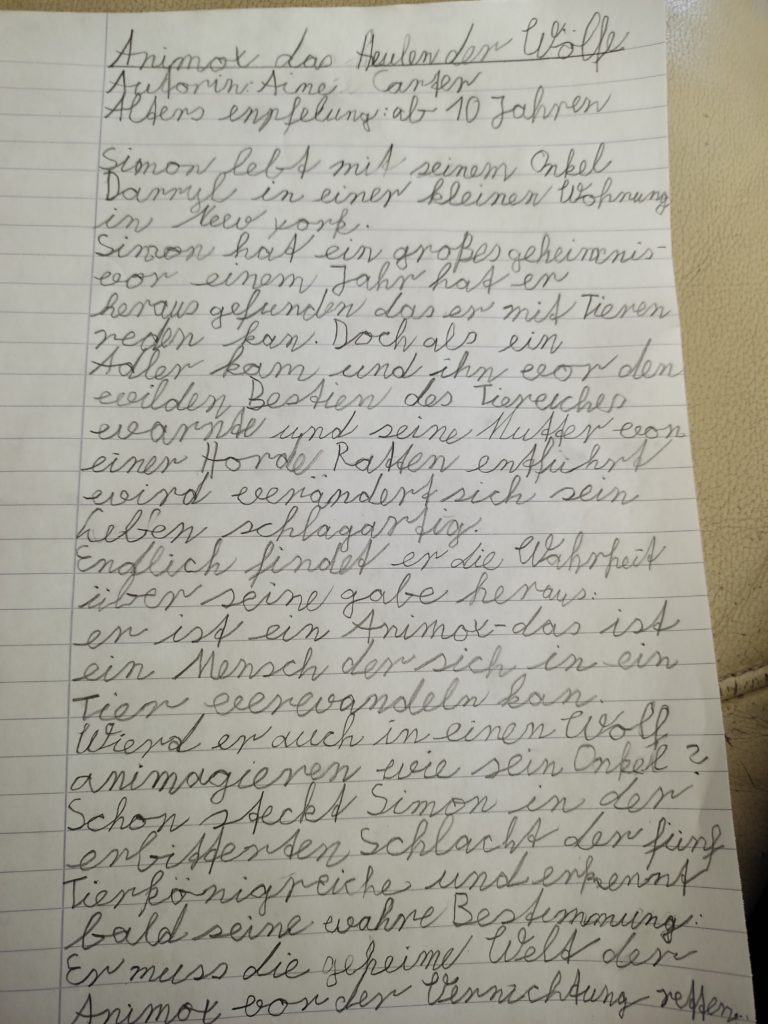 Animox das Heulen der Wölfe
Autorin: Aine Carter
Alters enpfelung: ab 10 Jahren
Simon lebt mit seinem Onkel
Darryl in einer kleinen Wohnung
in New york.
Simon hat ein großes geheimnis-
vor einem Jahr hat er
heraus gefunden das er mit Tieren
reden kan. Doch als ein
Adler kam und ihn vor den
wilden Bestien des Tiereiches
warnte und seine Mutter von
einer Horde Ratten entführt
wird verändert sich sein
Leben schlagartig.
Endlich findet er die Wahrheit
über seine gabe heraus:
er ist ein Animox-das ist
ein Mensch der sich in ein
Tier verwandeln kan.
Wierd er auch in einen Wolf
animagieren wie sein Onkel?
Schon steckt Simon in der
erbitterten Schlacht der fünf
Tierkönigreiche und erkennt
bald seine wahre Bestimmung:
Er muss die geheime Welt der
Animox vor der Vernichtung retten...